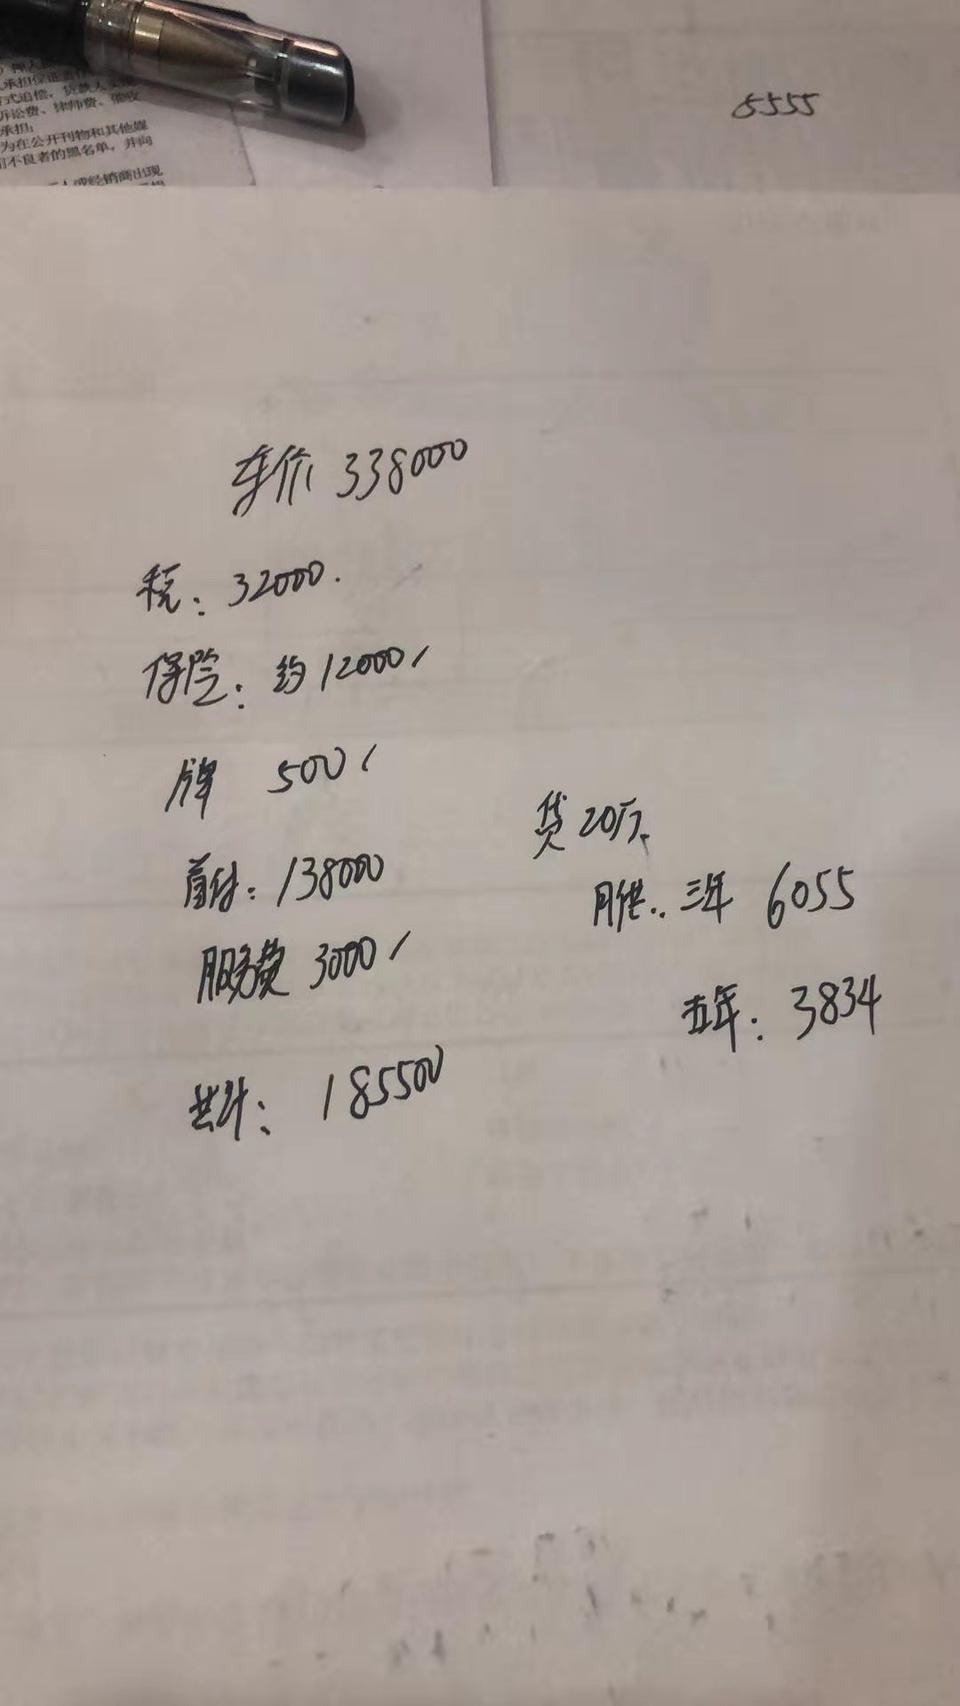 承担保证责任
式追偿，贷款人
诉讼费、律师费、催收
承担；
为在公开刊物和其他媒
用不良者的黑名单，并向
人或经销商出现
5555
车价 338000
税：32000.
保险：约12000/
牌 500/
首付：138000
服务费 3000/
共计：185500
贷20万
月供：三年 6055
五年：3834